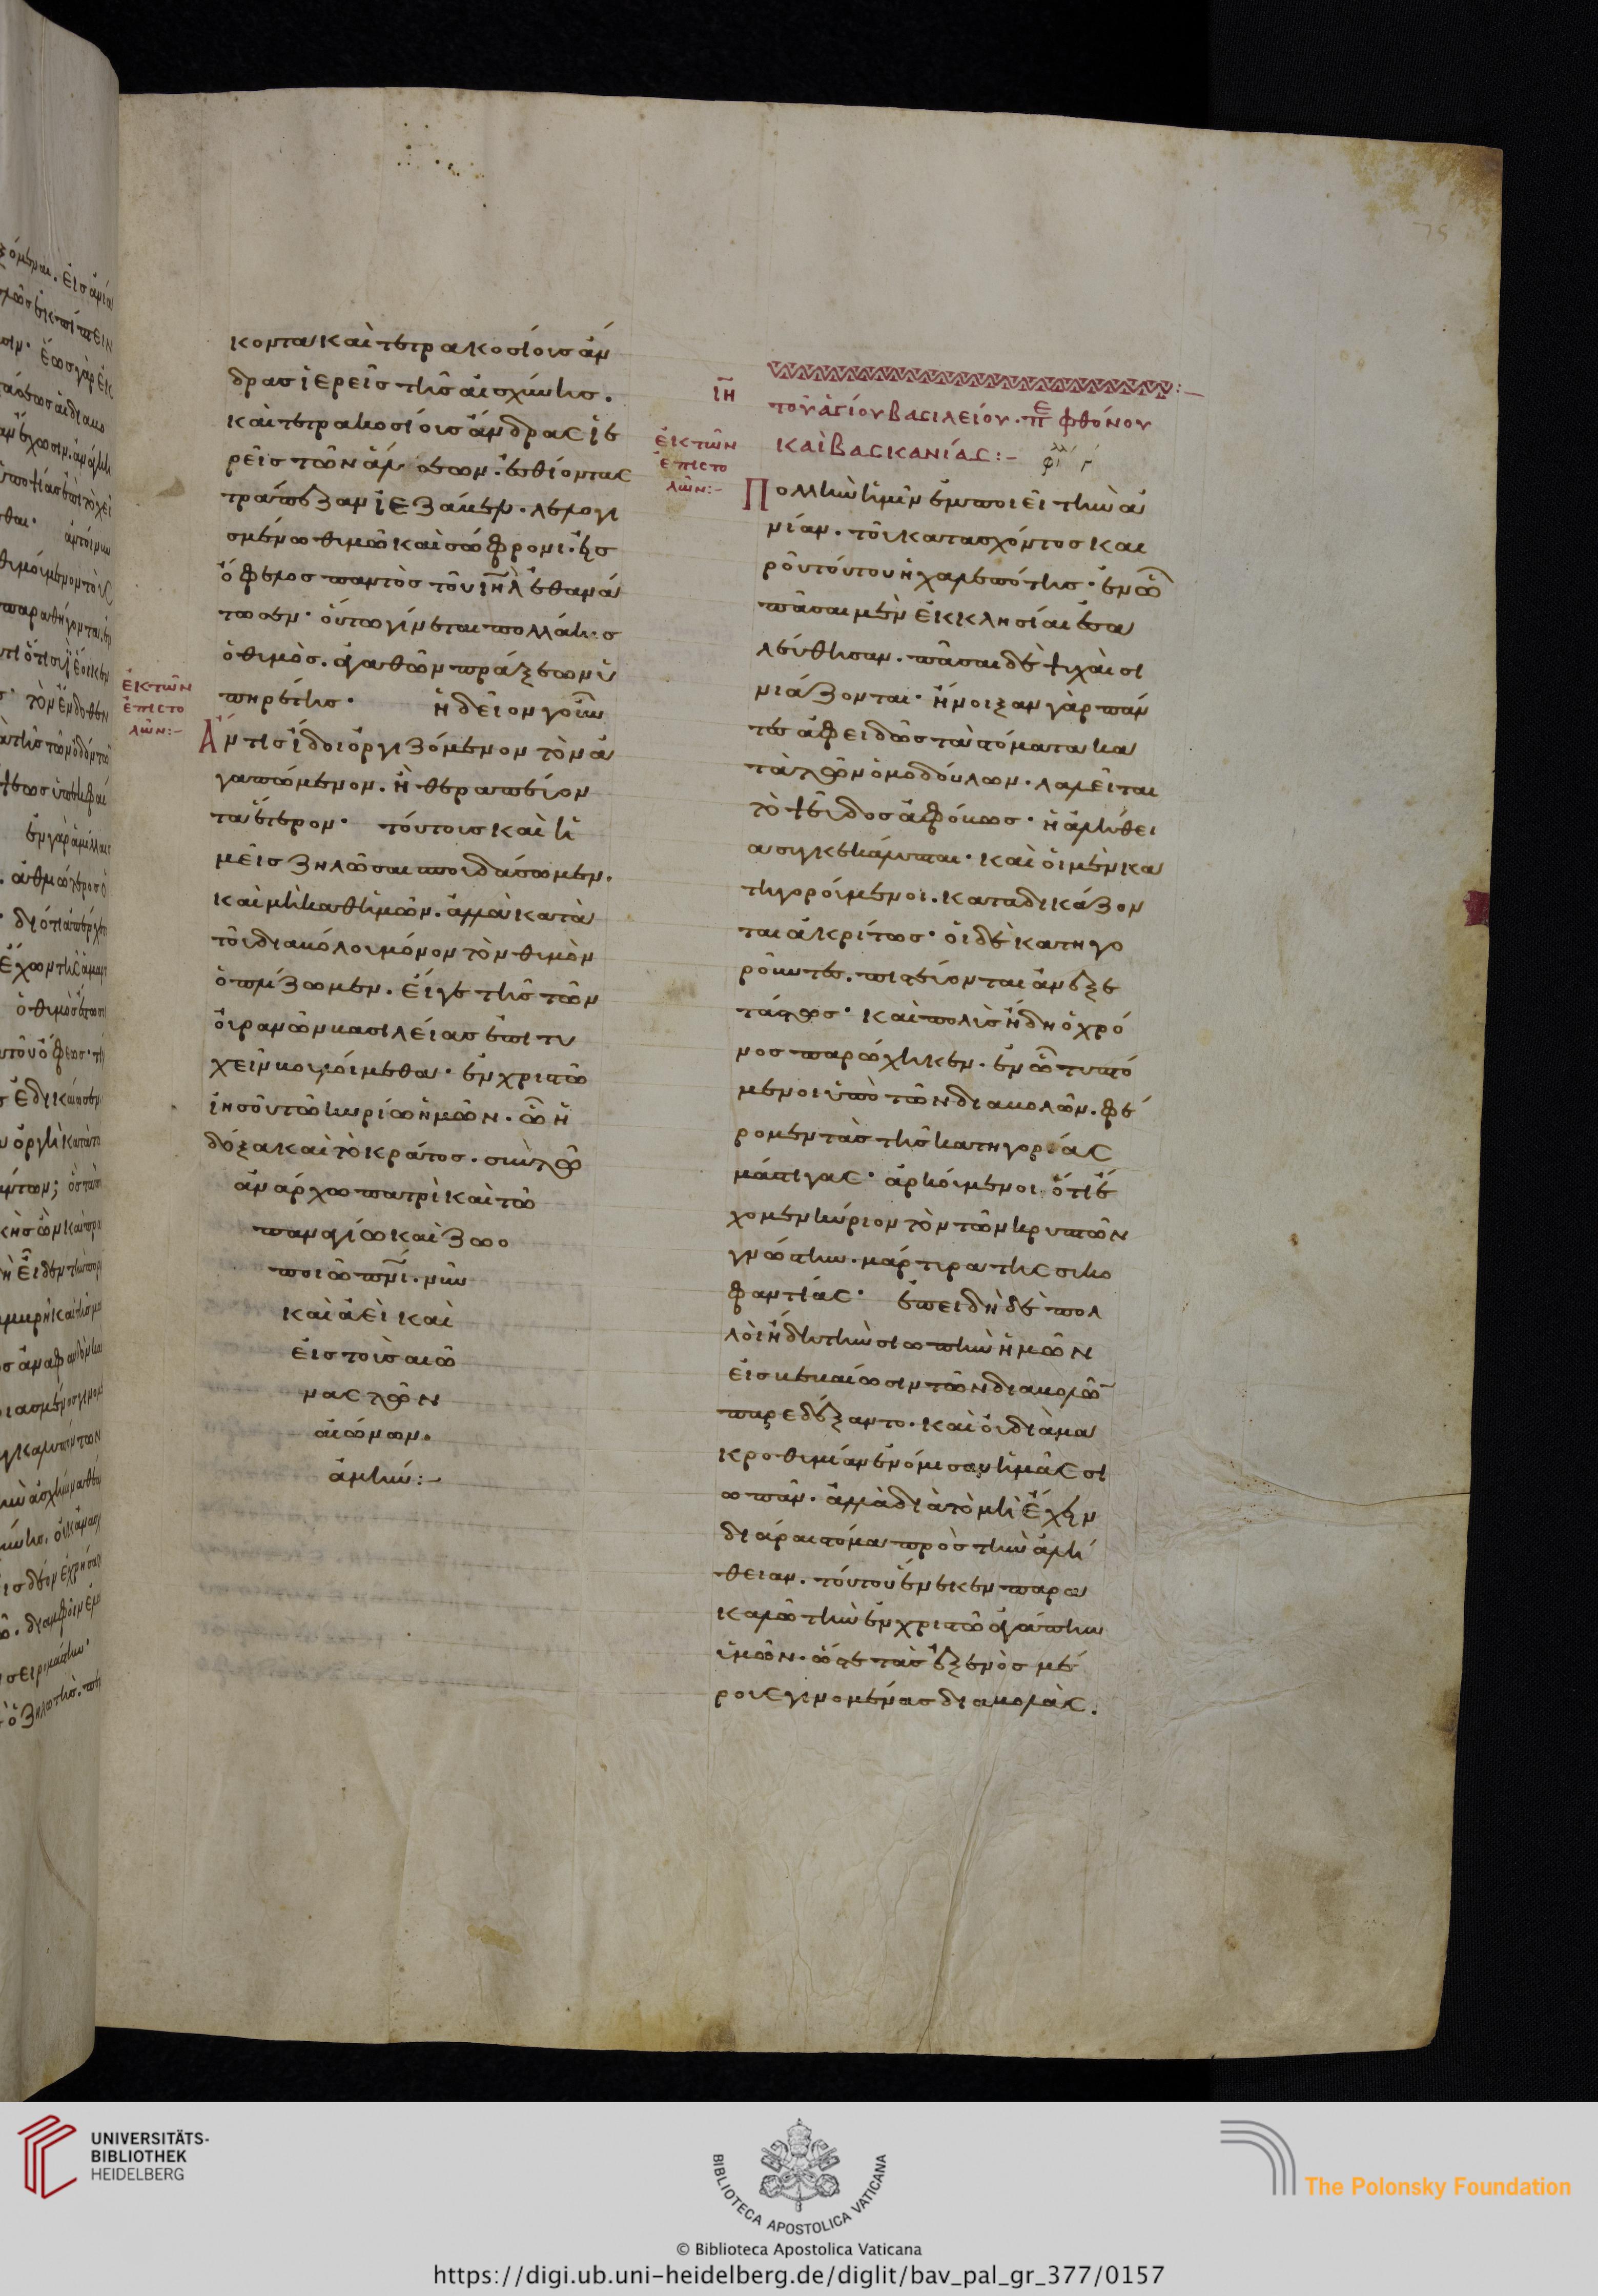 κοντα καὶ τετρακοσίους ἄν
δρας ἱερεῖς τῆς αἰσχύνης.
καὶ τετρακοσίους ἄνδρας ἱε
ρεῖς τῶν ἀλσεων. ἐσθίοντας
τράπεζαν ἰεζάκελ. λελογι
σμένω θυμῶ καὶ σώφρονι. εἰς
ὄφελος παντὸς τοῦ ἰηλ ἐθανά
τωσεν. οὕτω γίνεται πολλάκις
ὁ θυμὸς. ἀγαθῶν πράξεων ὑ
πηρέτης. ἡδεῖον γοῦν
ἄν τις ἴδοι ὀργιζόμενον τὸν ἀ
γαπώμενον. ἢ θεραπεύον
τα ἕτερον. τούτους καὶ ἡ
μεῖς ζηλῶσαι σπουδάσωμεν.
καὶ μὴ καθ ἡμῶν. ἀλλὰ κατὰ
τοῦ διαβόλου μόνον τὸν θυμὸν
ὁπλίζωμεν. εἴγε τῆς τῶν
οὐρανῶν βασιλείας ἐπιτυ
χεῖν βουλόμεθα. ἐν χριστῶ
ἰησοῦ τῶ κυρίω ἡμῶν. ὧ ἡ
δόξα καὶ τὸ κράτος. σὺν τῶ
ἀνάρχω πατρὶ καὶ τῶ
παναγίω καὶ ζωο
ποιῶ πνι. νῦν
καὶ ἀεὶ καὶ
εἰς τοὺς αἰῶ
νας τῶν
αἰώνων.
ἀμήν:-
ἐκ τῶν
ἐπιστο
λῶν:-
ιη
τοῦ ἁγίου βασιλείου. πε φθόνου
καὶ βασκανίας:-
ἐκ τῶν
ἐπιστο
λῶν:-
Πολλὴν ἡμῖν ἐμποιεῖ τὴν ἀ
νίαν. τοῦ κατασχόντος και
ροῦ τούτου ἡ χαλεπότης. ἐν ὧ
πᾶσαι μὲν ἐκκλησίαι ἐσα
λεύθησαν. πᾶσαι δὲ ψυχαὶ σι
νιάζονται. ἤνοιξαν γὰρ πάν
τες ἀφειδῶς τὰ στόματα κα
τὰ τῶν ὁμοδούλων. λαλεῖται
τὸ ψεῦδος ἀφόβως. ἡ ἀλήθει
α συγκεκάλυπται. καὶ οἱ μὲν κα
τηγορούμενοι. καταδικάζον
ται ἀκρίτως. οἱ δὲ κατηγο
ροῦντες. πιστεύονται ἀνεξε
τάστως. καὶ πολὺς ἤδη ὁ χρό
νος παρώχηκεν. ἐν ὧ τυπτό
μενοι ὑπὸ τῶν διαβολῶν. φέ
ρομεν τὰς τῆς κατηγορίας
μάστιγας. ἀρκούμενοι ὅτι ἔ
χομεν κύριον τὸν τῶν κρυπτῶν
γνώστην. μάρτυρα τῆς συκο
φαντίας. ἐπειδὴ δὲ πολ
λοὶ ἤδη τὴν σιωπὴν ἡμῶν
εἰς βεβαίωσιν τῶν διαβολῶ
παρεδέξαντο. καὶ οὐ διὰ μα
κροθυμίαν ἐνόμισαν ἡμᾶς σι
ωπᾶν. ἀλλὰ διὰ τὸ μὴ ἔχειν
διάραι στόμα πρὸς τὴν ἀλή
θειαν. τούτου ἕνεκεν παρα
καλῶ τὴν ἐν χριστῶ ἀγάπην
ὑμῶν. ὥστε τὰς ἐξ ἑνὸς μέ
ρους γινομένας διαβολὰς.
UNIVERSITÄTS-
BIBLIOTHEK
HEIDELBERG
BIBLIOTECA APOSTOLICA VATICANA
The Polonsky Foundation
© Biblioteca Apostolica Vaticana
https://digi.ub.uni-heidelberg.de/diglit/bav_pal_gr_377/0157